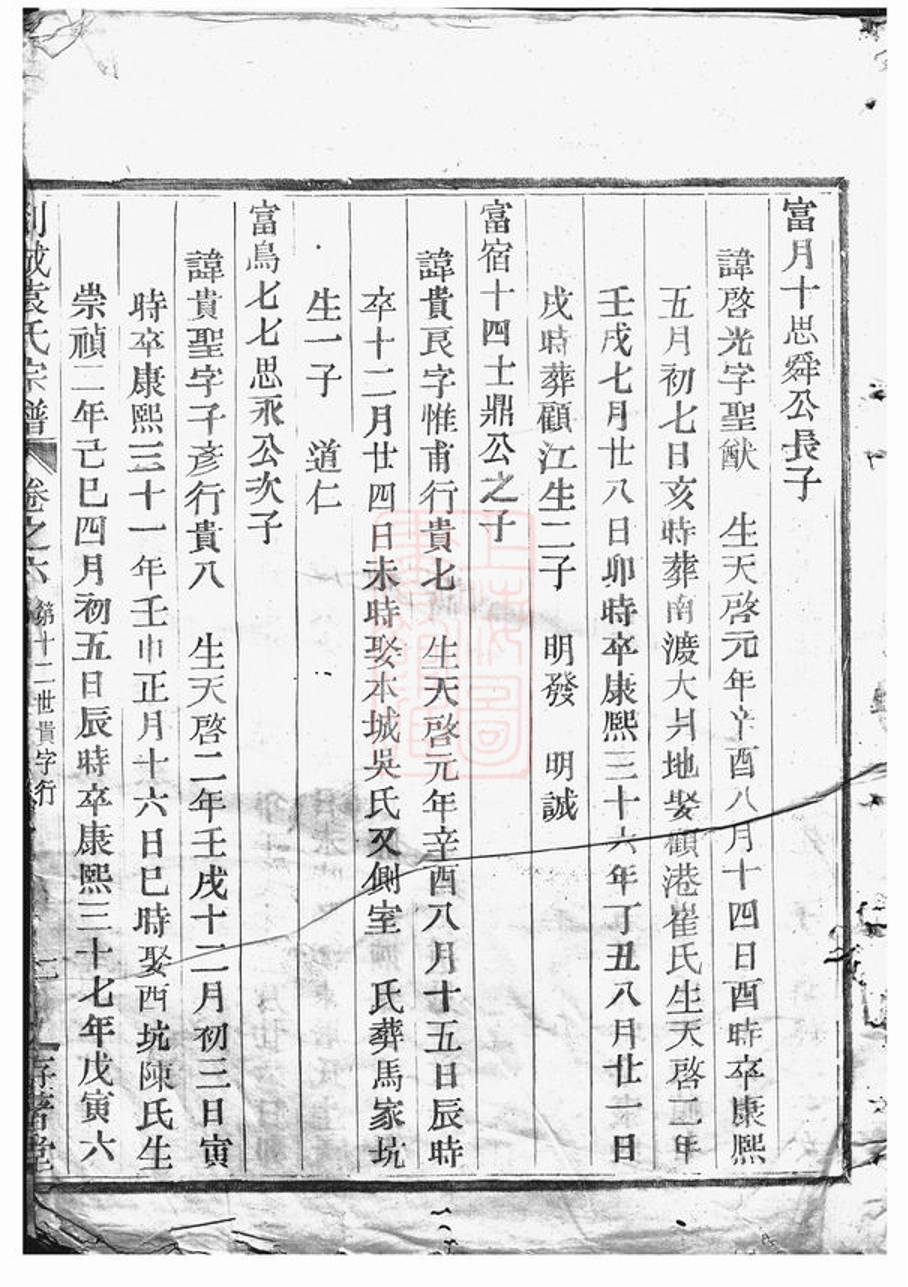 富月十思舜公長子
諱啓光字聖猷 生天啓元年辛酉八月十四日酉時卒康熙
五月初七日亥時葬南渡大爿地娶顧港崔氏生天啓二年
壬戌七月廿八日卯時卒康熙三十六年丁丑八月廿一日
戌時葬顧江生二子 明發 明誠
富宿十四士鼎公之子
諱貴良字惟甫行貴七 生天啓元年辛酉八月十五日辰時
卒十二月廿四日未時娶本城吳氏又側室 氏葬馬家坑
生一子 道仁
富鳥七七思永公次子
諱貴聖字子彥行貴八 生天啓二年壬戌十二月初三日寅
時卒康熙三十一年壬申正月十六日巳時娶西坑陳氏生
崇禎二年己巳四月初五日辰時卒康熙三十七年戊寅六
袁氏宗譜 卷之六 第十二世貴字行 存著堂
上海圖書館藏